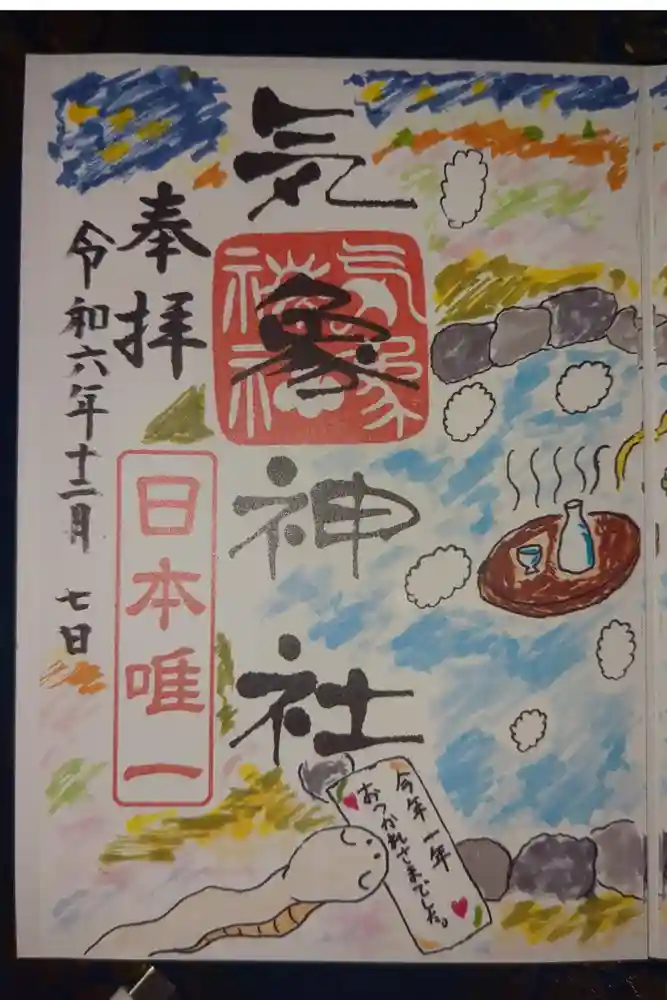 気象神社
気象神社
奉拝
日本唯一
令和六年十二月 七日
今年一年
おつかれさまでした。